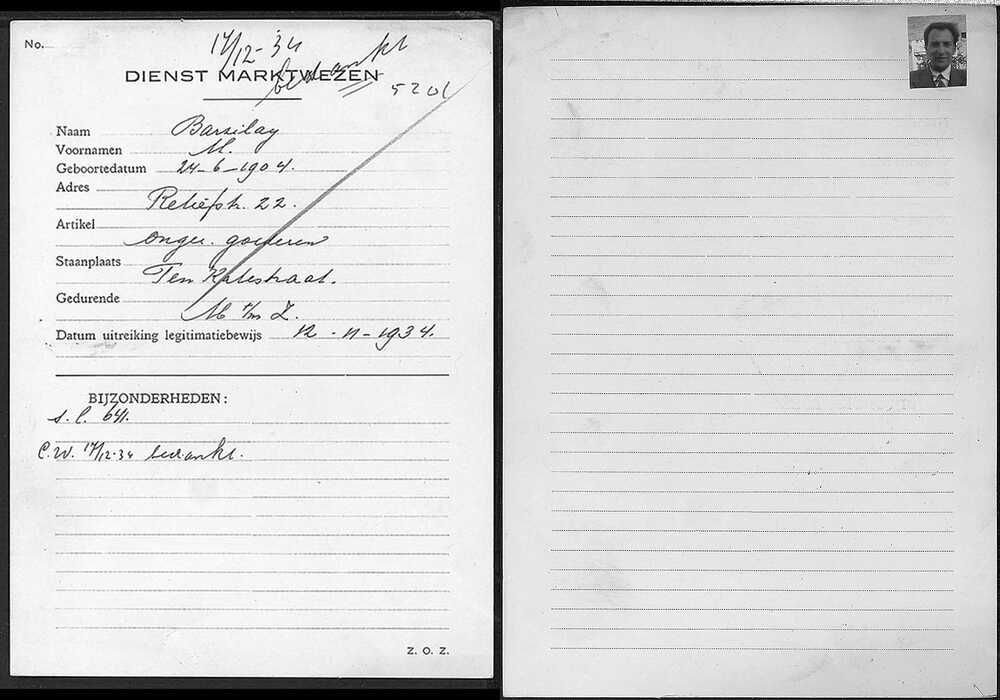 No.
17/12-'34
bedankt
DIENST MARKTWEZEN
5201
Naam Barzilay
Voornamen M.
Geboortedatum 24-6-1904.
Adres
Retiefstr. 22.
Artikel
onger. goederen
Staanplaats
Ten Katestraat.
Gedurende
M t/m Z.
Datum uitreiking legitimatiebewijs 12-11-1934.
BIJZONDERHEDEN:
s.l. 641.
C.W. 17/12-34 bedankt.
Z. O. Z.